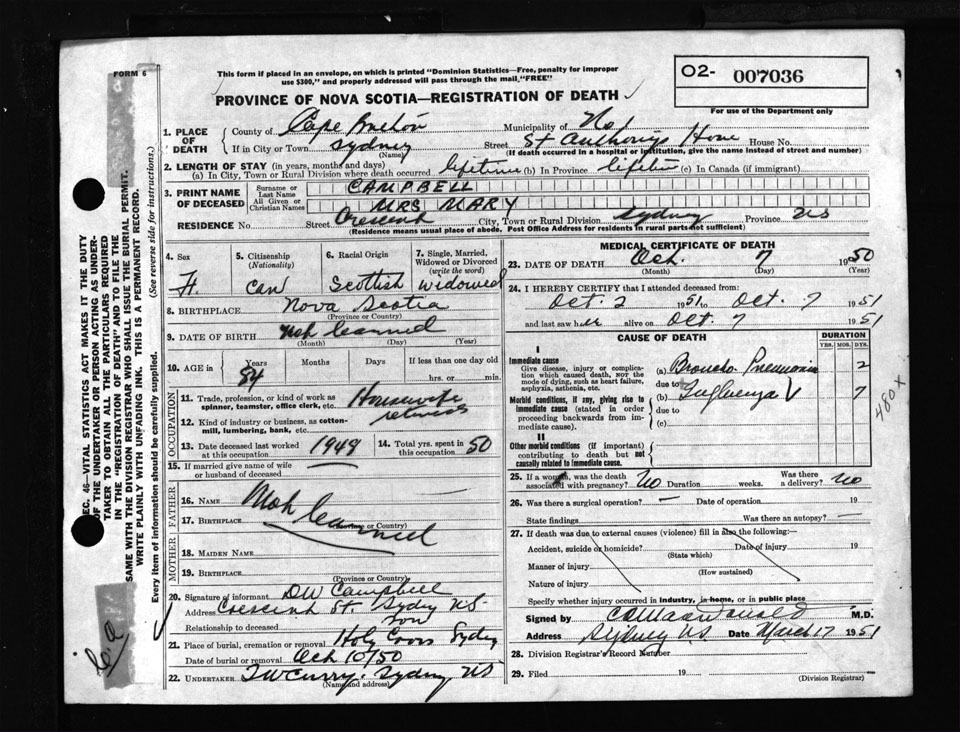 FORM 6
This form if placed in an envelope, on which is printed "Dominion Statistics—Free, penalty for improper
use $300," and properly addressed will pass through the mail, "FREE"
O2- 007036
For use of the Department only
PROVINCE OF NOVA SCOTIA—REGISTRATION OF DEATH
1. PLACE OF DEATH
County of Cape Breton Municipality of No 1
If in City or Town Sydney Street St Anthony Home House No.
(Name) (If death occurred in a hospital or institution, give the name instead of street and number)
2. LENGTH OF STAY (in years, months and days)
(a) In City, Town or Rural Division where death occurred lifetime (b) In Province lifetime (c) In Canada (if immigrant)
3. PRINT NAME OF DECEASED
Surname or Last Name CAMPBELL
All Given or Christian Names MRS MARY
RESIDENCE No. Street Crescent City, Town or Rural Division Sydney Province NS
(Residence means usual place of abode. Post Office Address for residents in rural parts not sufficient)
4. Sex F.
5. Citizenship (Nationality) Can
6. Racial Origin Scottish
7. Single, Married, Widowed or Divorced (write the word) Widowed
8. BIRTHPLACE Nova Scotia
(Province or Country)
9. DATE OF BIRTH
(Month) (Day) (Year)
10. AGE in Years 84 Months Days If less than one day old
hrs. or min.
OCCUPATION
11. Trade, profession, or kind of work as spinner, teamster, office clerk, etc. Housewife
12. Kind of industry or business, as cotton-mill, lumbering, bank, etc.
13. Date deceased last worked at this occupation 1949
14. Total yrs. spent in this occupation 50
15. If married give name of wife or husband of deceased
FATHER
16. NAME
17. BIRTHPLACE
(Province or Country)
MOTHER
18. MAIDEN NAME
19. BIRTHPLACE
(Province or Country)
20. Signature of informant D W Campbell
Address Crescent St. Sydney NS
Relationship to deceased son
21. Place of burial, cremation or removal Holy Cross Sydney
Date of burial or removal Oct 10/50
22. UNDERTAKER T W Curry. Sydney NS
(Name and address)
MEDICAL CERTIFICATE OF DEATH
23. DATE OF DEATH Oct. 7 1950
(Month) (Day) (Year)
24. I HEREBY CERTIFY that I attended deceased from:
Oct. 2 1951 to Oct. 7 1951
and last saw her alive on Oct 7 1951
CAUSE OF DEATH
DURATION
YRS. MOS. DYS.
I
Immediate cause
Give disease, injury or complication which caused death, NOT the mode of dying, such as heart failure, asphyxia, asthenia, etc.
(a) Broncho Pneumonia 2
due to
Morbid conditions, if any, giving rise to immediate cause (stated in order proceeding backwards from immediate cause).
(b) Influenza V 7
due to
(c)
480 x
II
Other morbid conditions (if important) contributing to death but not causally related to immediate cause.
25. If a woman, was the death associated with pregnancy? No Duration weeks. Was there a delivery? No
26. Was there a surgical operation? — Date of operation 19
State findings Was there an autopsy? —
27. If death was due to external causes (violence) fill in also the following:
Accident, suicide or homicide? Date of injury 19
(State which)
Manner of injury
(How sustained)
Nature of injury
Specify whether injury occurred in industry, in home, or in public place
Signed by M.D.
Address Sydney NS Date March 17 1951
28. Division Registrar's Record Number
29. Filed 19
(Division Registrar)
SEC. 46—VITAL STATISTICS ACT MAKES IT THE DUTY
OF THE UNDERTAKER OR PERSON ACTING AS UNDERTAKER
TO OBTAIN ALL THE PARTICULARS REQUIRED
IN THE "REGISTRATION OF DEATH" AND TO FILE THE
SAME WITH THE DIVISION REGISTRAR WHO SHALL ISSUE THE BURIAL PERMIT.
WRITE PLAINLY WITH UNFADING INK. THIS IS A PERMANENT RECORD.
Every item of information should be carefully supplied. (See reverse side for instructions.)